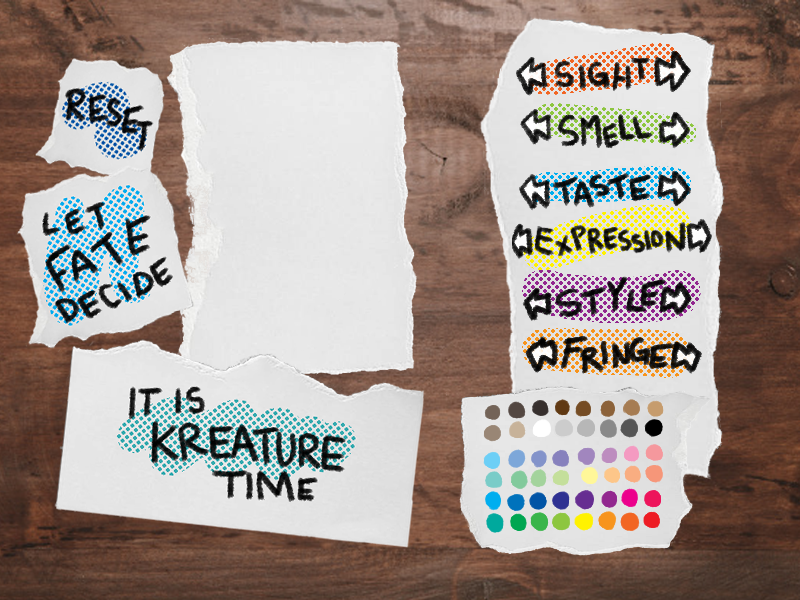 RESET
LET
FATE
DECIDE
IT IS
KREATURE
TIME
SIGHT
SMELL
TASTE
EXPRESSION
STYLE
FRINGE